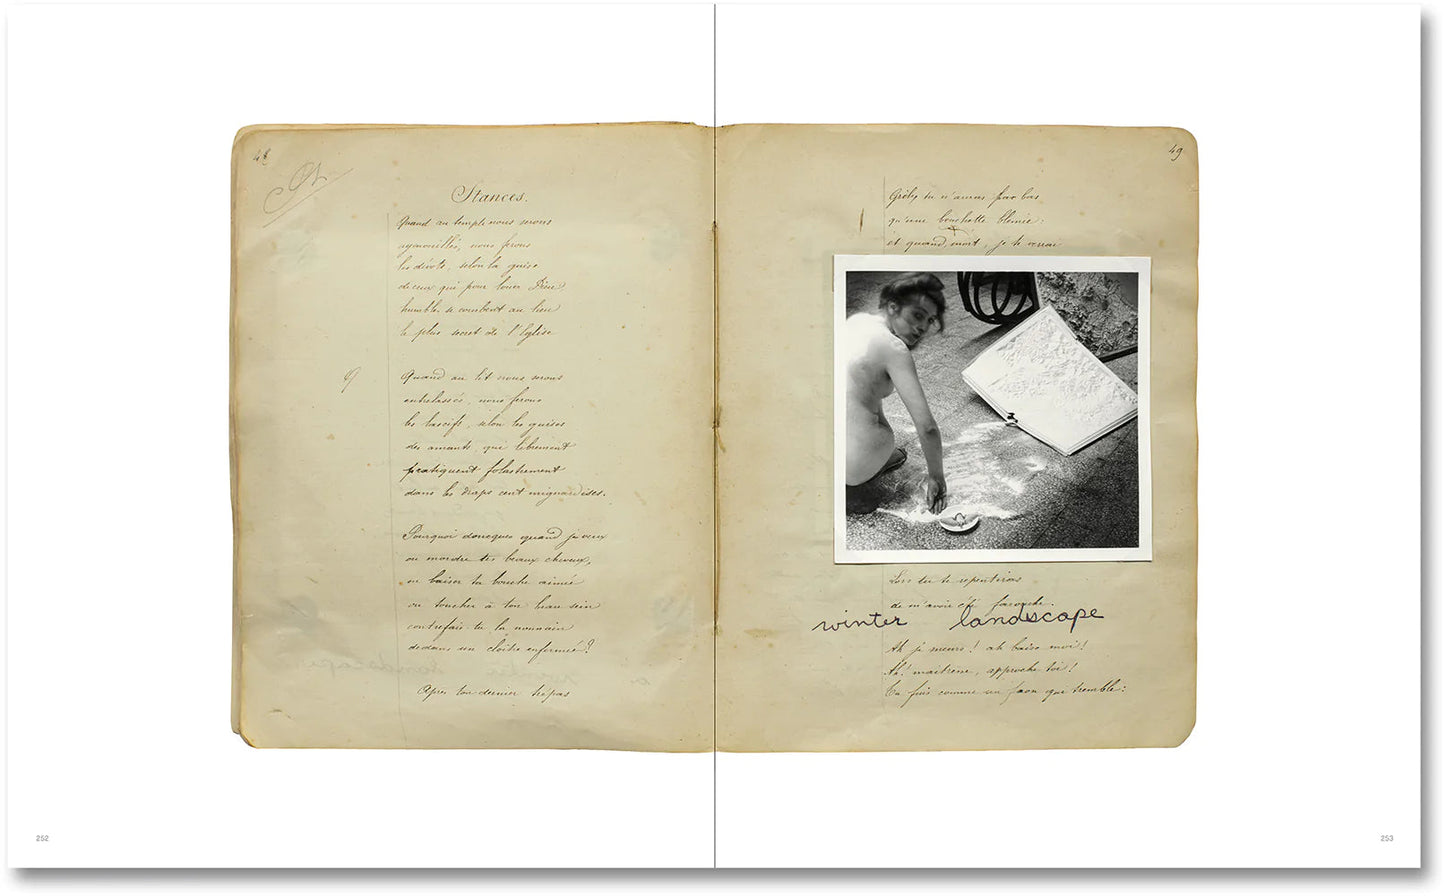 48
Stances.
Quand au temple nous serons
agenouillés, nous ferons
les dévots, selon la guise
de ceux qui pour louer Dieu
humbles se courbent au lieu
le plus secret de l'Eglise
9
Quand au lit nous serons
entrelassés, nous ferons
les lascifs, selon les guises
des amants, qui librement
pratiquent folastrement
dans les draps cent mignardises.
Pourquoi doncques quand je veux
ou mordre tes beaux cheveux,
ou baiser ta bouche aimée
ou toucher à ton beau sein
contrefais-tu la nonnain
dedans un cloître enfermée?
Après ton dernier trépas
252
49
Grêle tu n'auras par bas
qu'une bouchette blémie:
et quand, mort, je te verrai
Lors tu te repentiras
de m'avoir été farouche.
winter landscape
Ah je meurs! ah baise moi!
Ah! maitresse, approche toi!
Tu fuis comme un faon qui tremble:
253